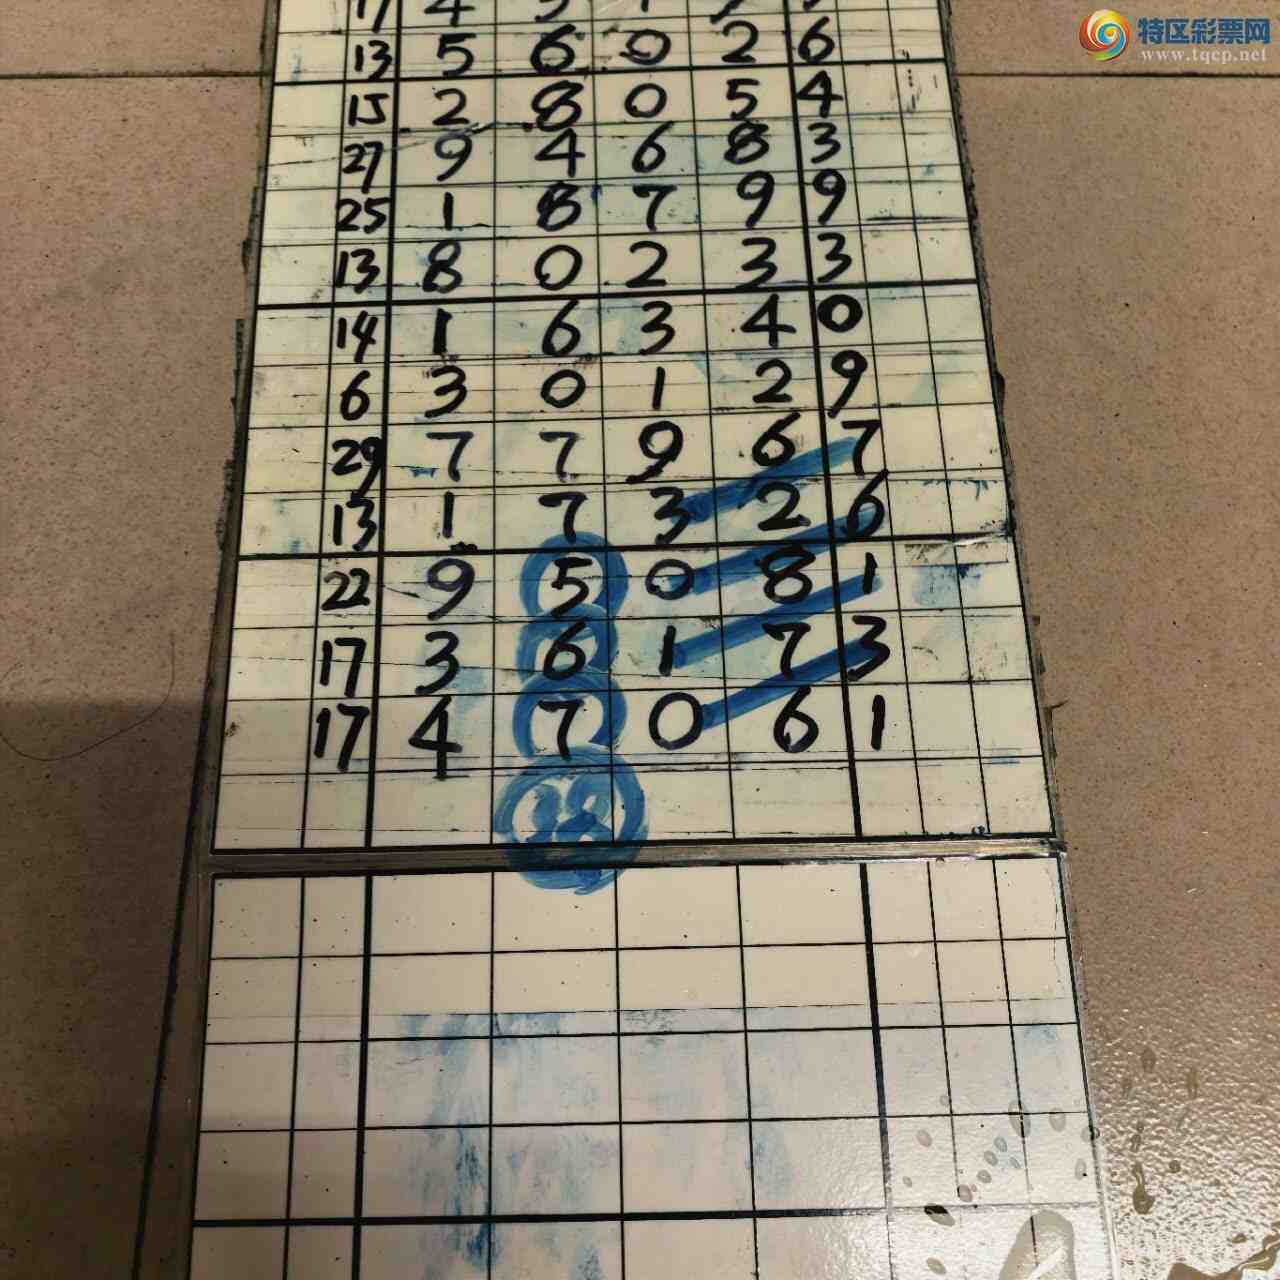 特区彩票网
www.tqcp.net
17 4
13 5 6 0 2 6
15 2 8 0 5 4
27 9 4 6 8 3
25 1 8 7 9 9
13 8 0 2 3 3
14 1 6 3 4 0
6 3 0 1 2 9
29 7 7 9 6 7
13 1 7 3 2 6
22 9 5 0 8 1
17 3 6 1 7 3
17 4 7 0 6 1
38